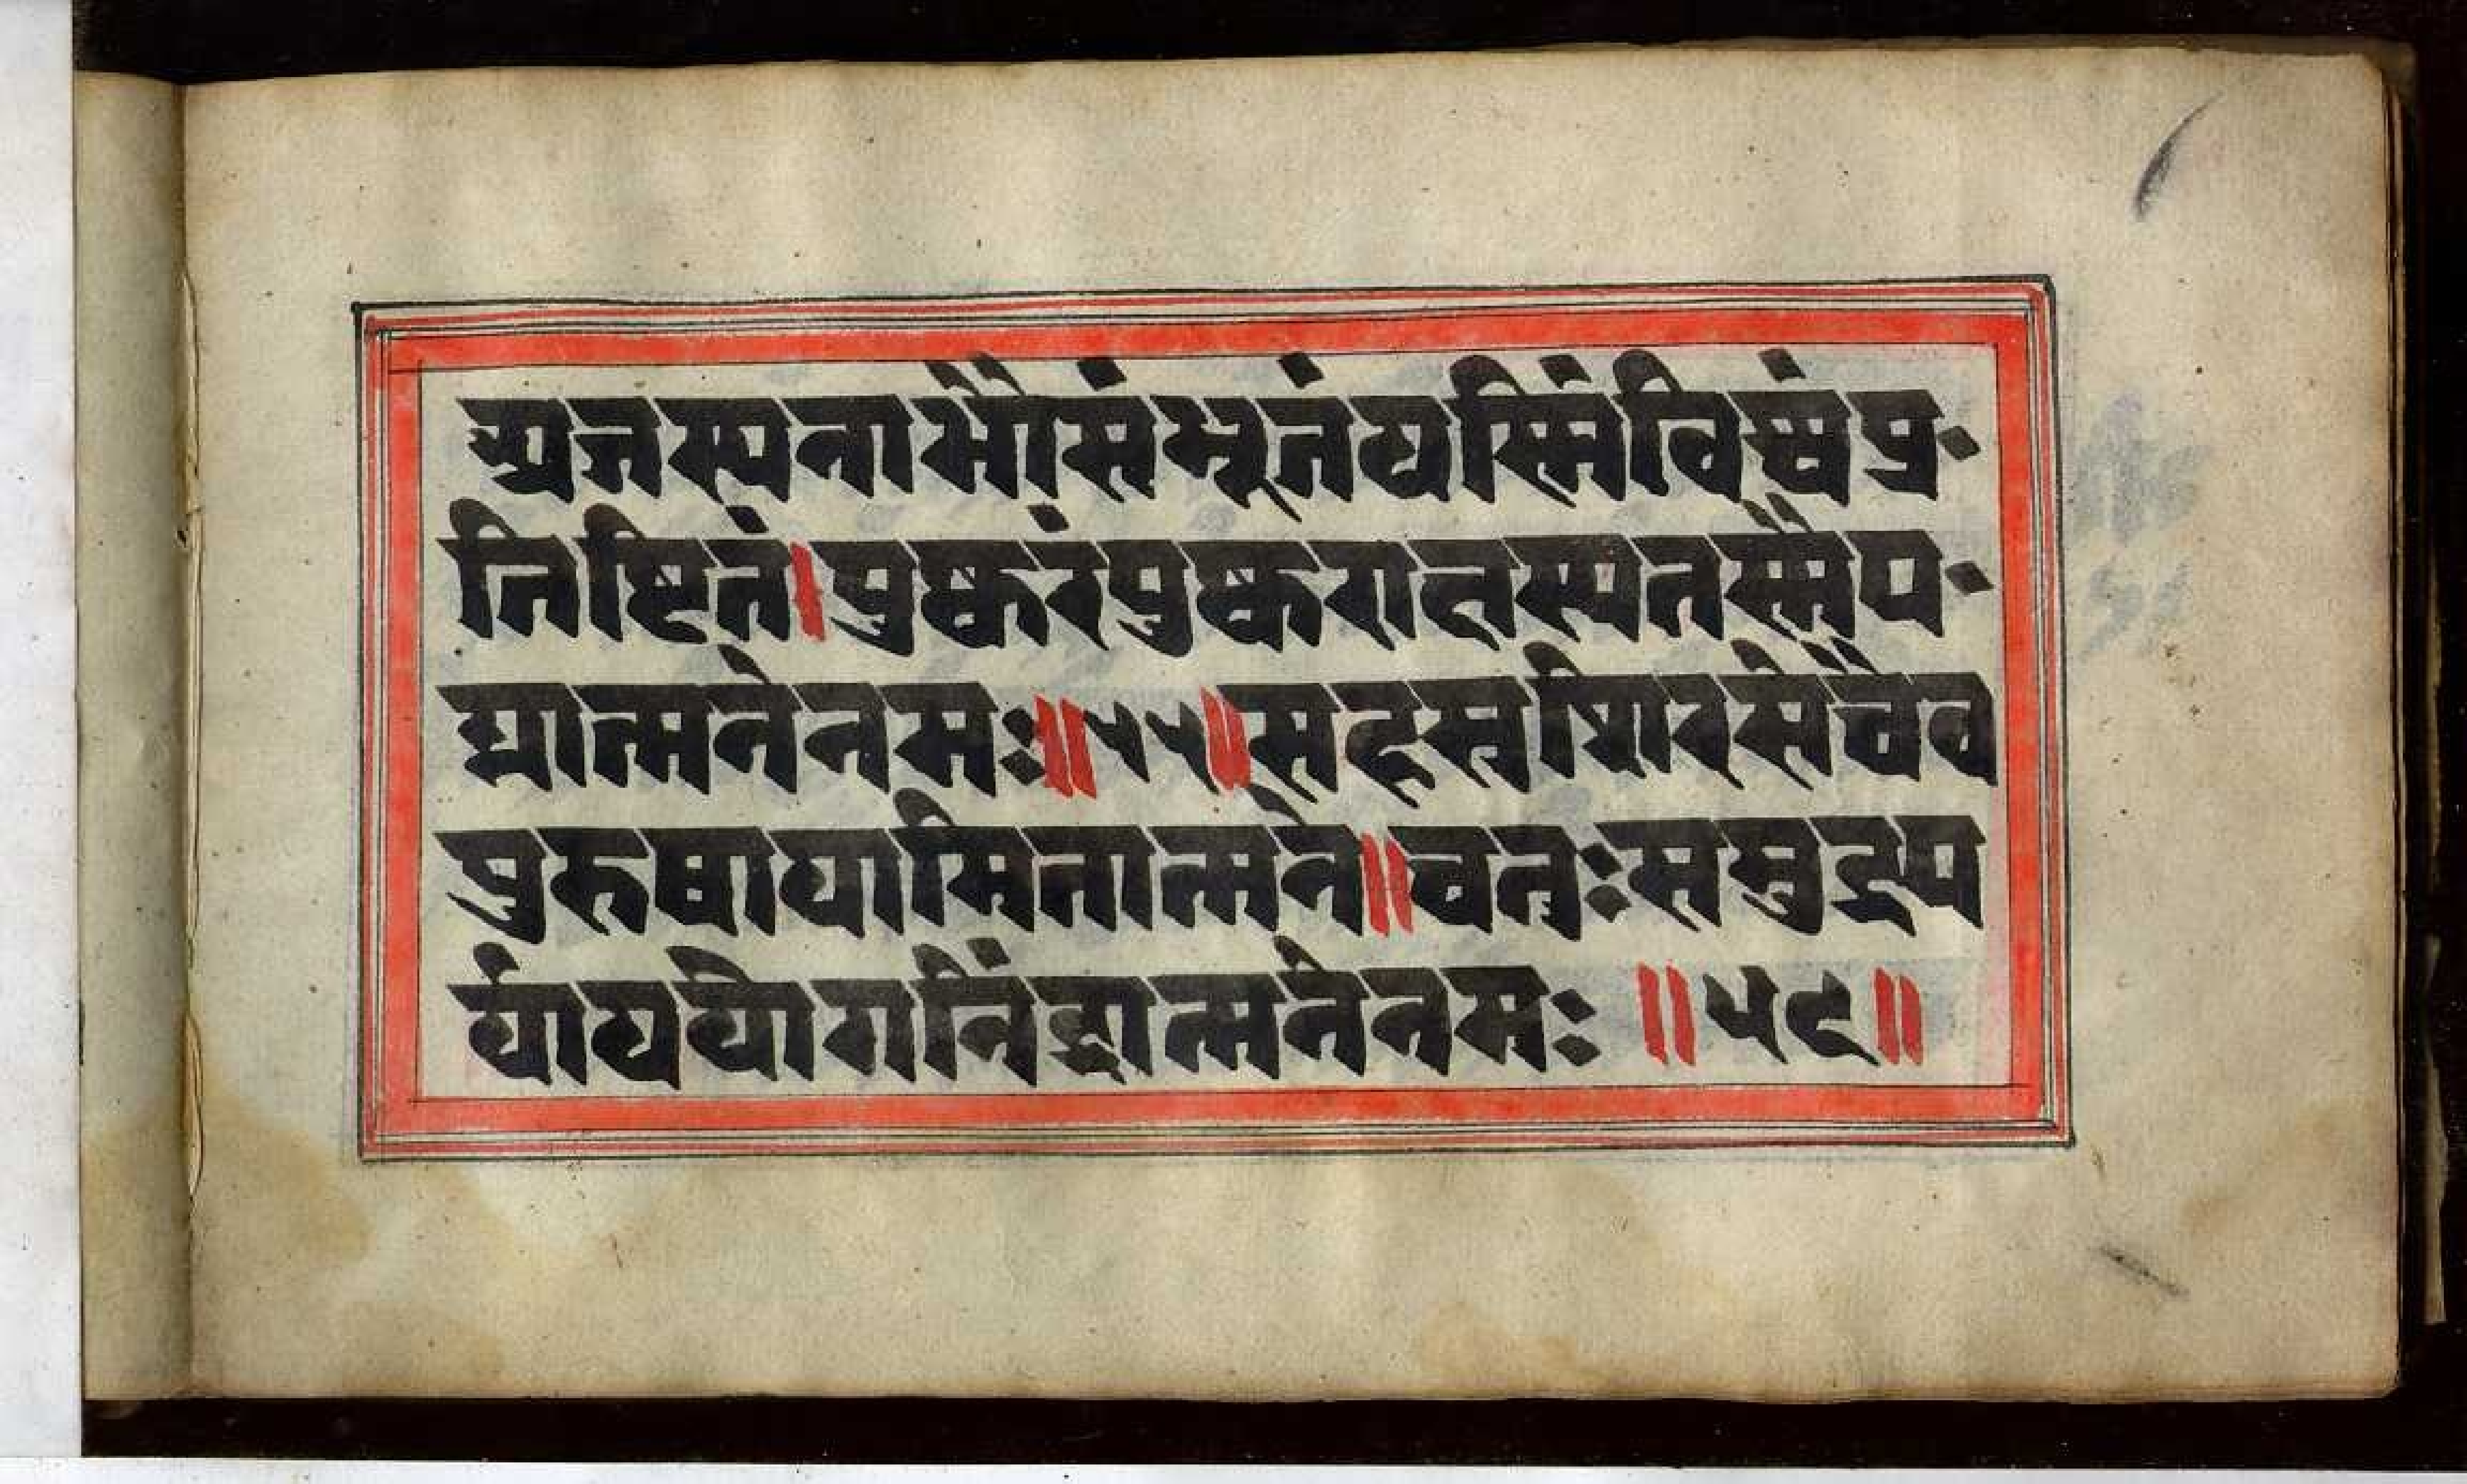 अजस्यनाभौसंभूतंयस्मिंविश्वंप्र-
तिष्टितं।पुष्करंपुष्कराक्षस्यतस्मैप-
द्मात्मनेनमः॥५५॥सहस्रशिरसेचैव
पुरुषायामितात्मने॥चतुःसमुद्रप
र्याययोगनिंद्रात्मनेनमः ॥५६॥